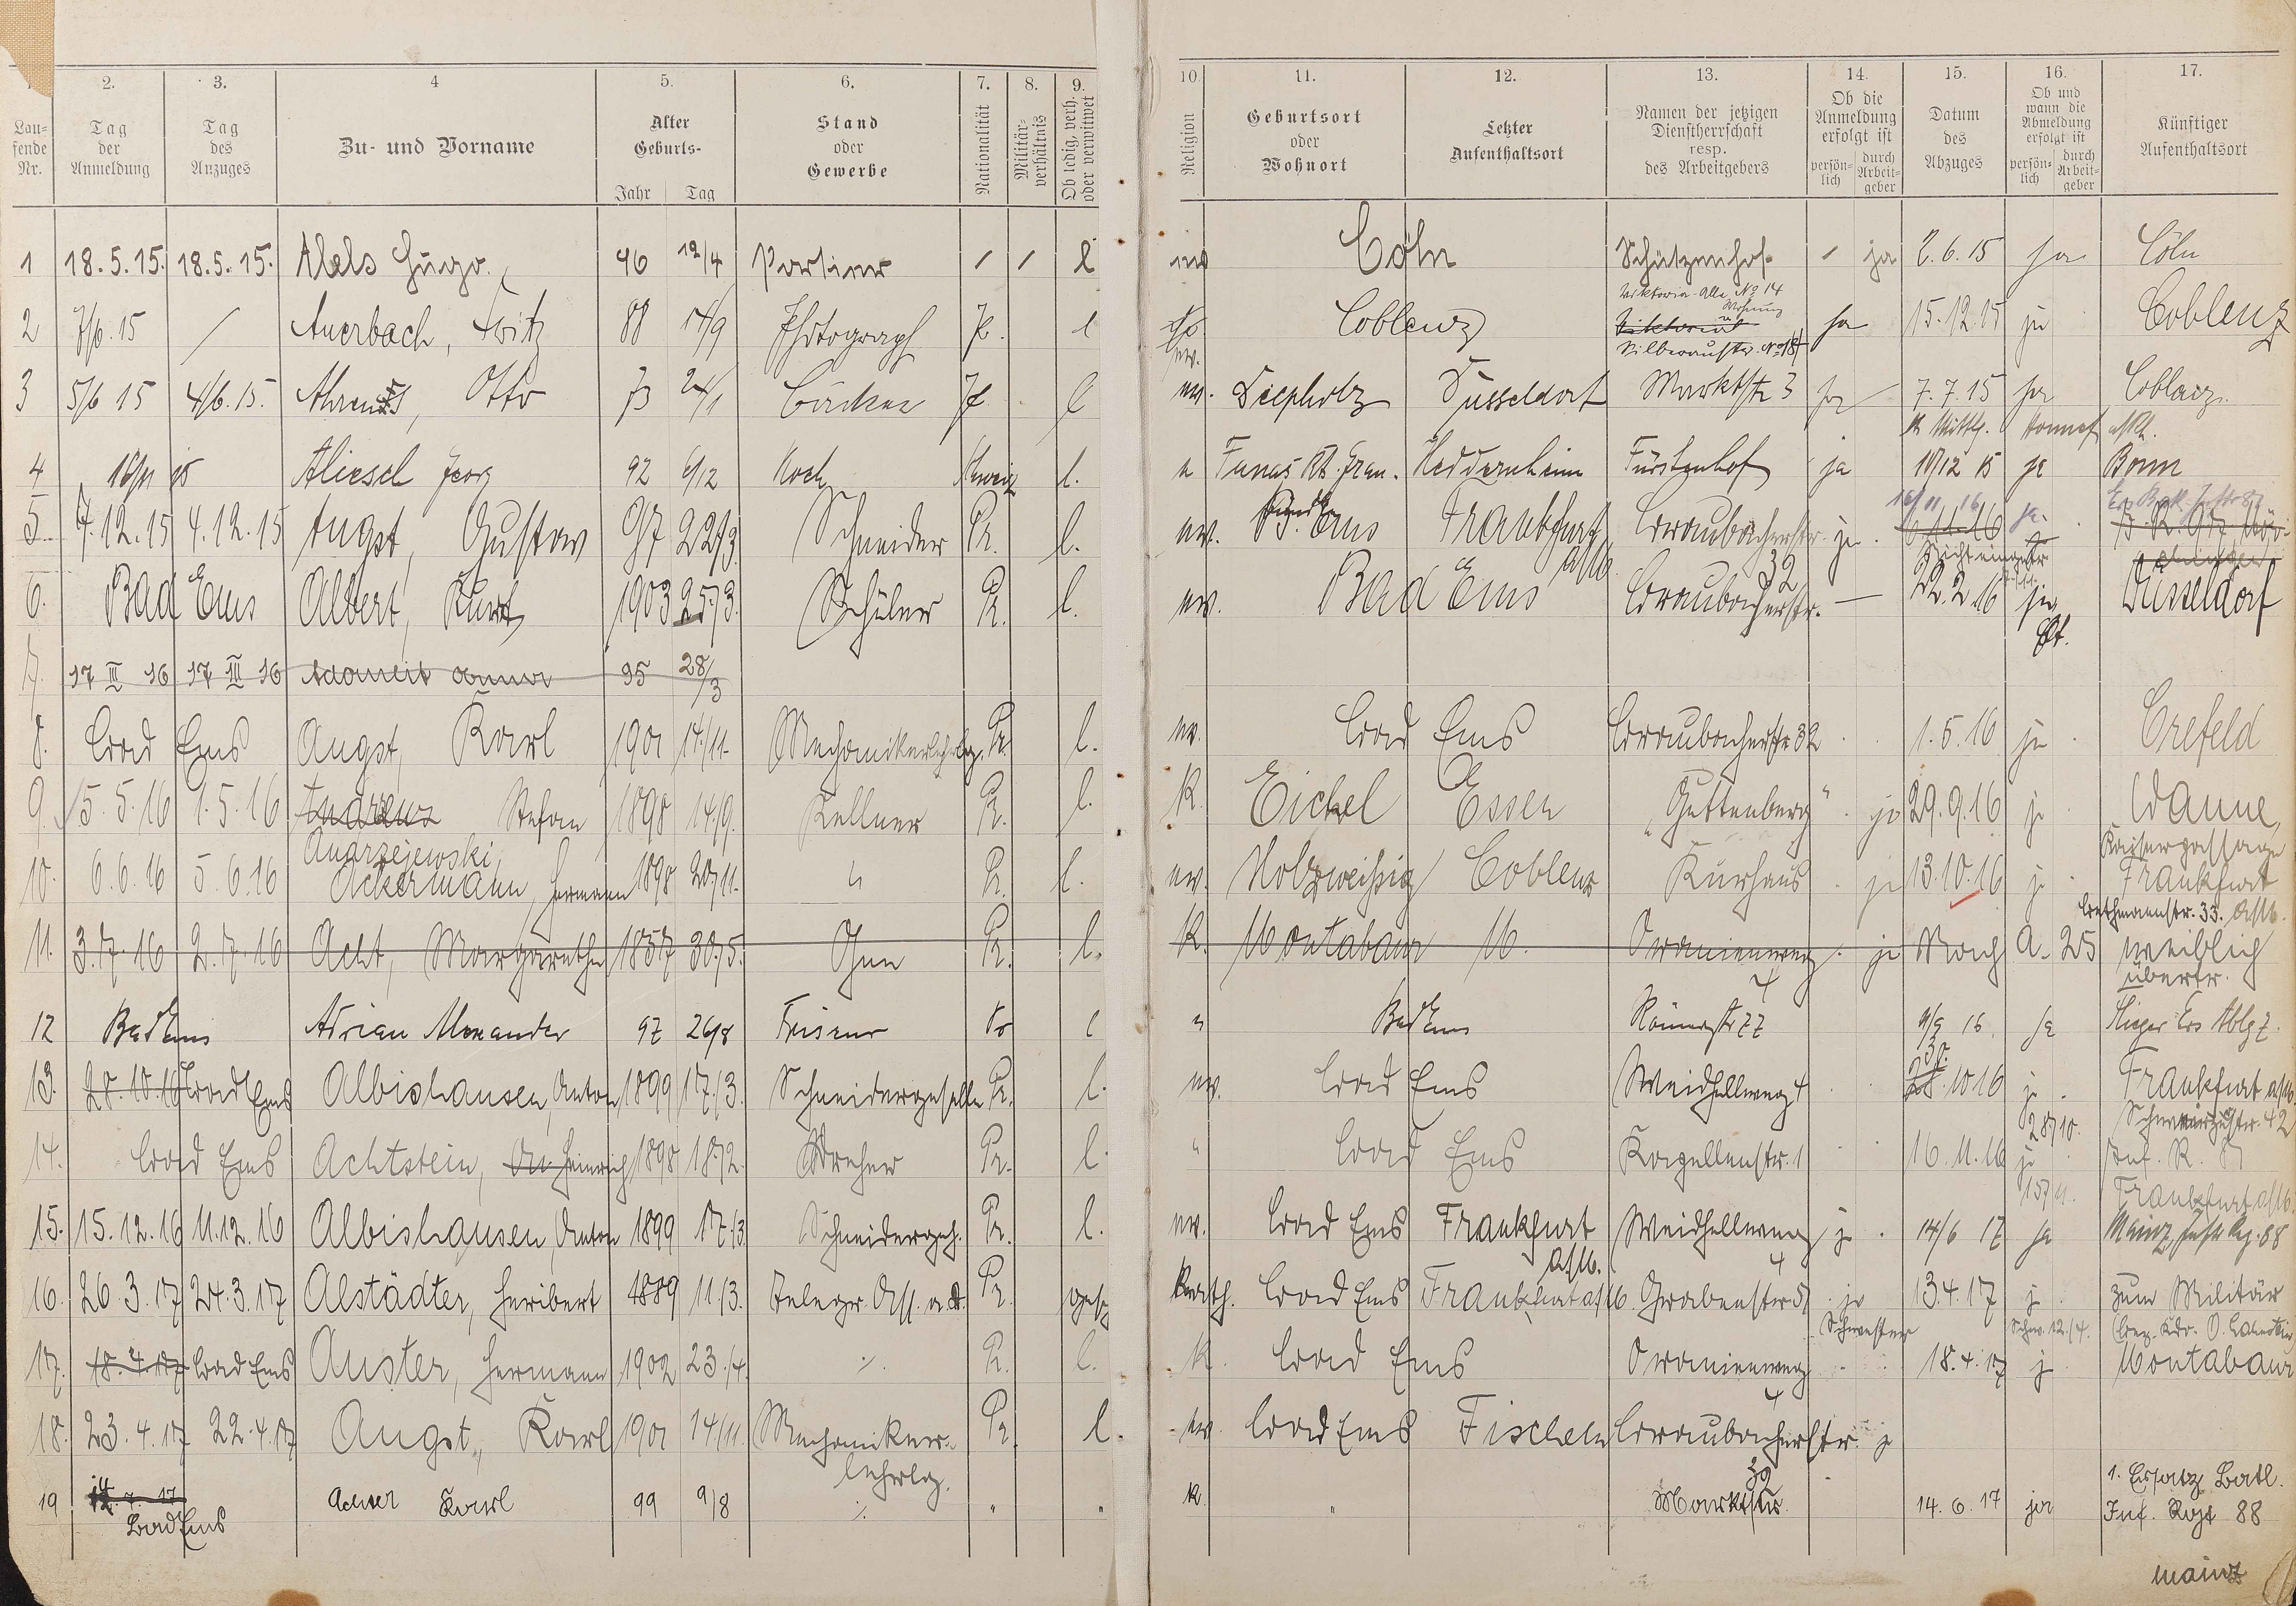 2. 3. 4 5. 6. 7. 8. 9. 10. 11. 12. 13. 14. 15. 16. 17.
Lau-
fende
Nr.
Tag
der
Anmeldung
Tag
des
Anzuges
Zu- und Vorname
Alter
Geburts-
Jahr Tag
Stand
oder
Gewerbe
Nationalität
Militär-
verhältnis
Ob ledig, verh.
oder verwitwet
Religion
Geburtsort
oder
Wohnort
Letzter
Aufenthaltsort
Namen der jetzigen
Dienstherrschaft
resp.
des Arbeitgebers
Ob die
Anmeldung
erfolgt ist
persön-
lich
durch
Arbeit-
geber
Datum
des
Abzuges
Ob und
wann die
Abmeldung
erfolgt ist
persön-
lich
durch
Arbeit-
geber
Künftiger
Aufenthaltsort
1 18.5.15. 18.5.15. Abels Hugo 96 12/4 Portier / / l ev Cöln Schützenhof / ja 2.6.15 ja Cöln
Viktoria-Alle No 14
Wohnung
2 7/6.15 / Auerbach, Fritz 88 14/9 Photograph P. l ev. Coblenz ja 15.12.15 ja Coblenz
Silberaustr. No 18
3 5/6 15 4/6.15. Ahrens, Otto 73 24/1 Bäcker l ev. Diepholz Düsseldorf Marktstr 3 ja 7.7.15 ja Coblenz
4 Aliesch Georg 92 6/12 Koch Schweiz l. Fanas Heddernheim Fürstenhof ja 10/12 15 ja Bonn
5 7.12.15 4.12.15 Angst, Gustav 97 22/3 Schneider Pr. l. ev. B. Ems Frankfurt a/M. Braubacherstr. 32 ja. 16/11 16 ja
6. Bad Ems Albert, Kurt 1903 25/3. Schüler Pr. l. ev. Bad Ems Braubacherstr. — 22.2.16 ja Düsseldorf
7. 17 III 16 17 III 16 Adomeit Anna 95 28/3
8. Bad Ems Angst, Karl 1901 14/11. Mechanikerlehrlg. Pr. l. ev. Bad Ems Braubacherstr 32 1.5.16 ja Crefeld
9. 5.5.16 1.5.16 Stefan 1898 14/9. Kellner Pr. l. K. Eickel Essen „Guttenberg“ ja 29.9.16 ja Wanne,
Andrzejewski, Kaiserpassage
10. 6.6.16 5.6.16 Ackermann, Hermann 1898 20/11. " Pr. l. ev. Holzweißig Coblenz Kurhaus ja 13.10.16 ja Frankfurt
Bethmannstr. 33. a/M.
11. 3.7.16 2.7.16 Acht, Margarethe 1857 30/5. Pr. l. K. Montabaur M. Oranienweg 4 ja Nach A-25 weiblich
übertr.
12 Bad Ems Adrian Alexander 97 26/8 Friseur Pr l " Bad Ems Römerstr 77 16 ja
13. 28.10.16 Bad Ems Albishausen, Anton 1899 17./3. Schneidergeselle Pr. l. ev. Bad Ems Weidhellweg 4 10 16 ja Frankfurt a/M.
28/10.
14. Bad Ems Achtstein, Heinrich 1898 18/2. Dreher Pr. l. " Bad Ems Kapellenstr. 1 16.11.16 ja Inf. R. 87
15/11. Frankfurt a/M.
15. 15.12.16 11.12.16 Albishausen, Anton 1899 17./3. Schneiderges. Pr. l. ev. Bad Ems Frankfurt a/M. Weidhellweg 4 ja 14/6 17 ja Mainz, Inftr Reg. 88
16. 26.3.17 24.3.17 Alstädter, Heribert 1889 11./3. Telegr. Ass. a. D. Pr. gesch. Kath. Bad Ems Frankfurt a/M. Grabenstr 51 ja 13.4.17 j zum Militär
Schwester Schw. 12./4.
17. 18.4.17 Bad Ems Auster, Hermann 1902 23./4. ./. Pr. l. K. Bad Ems Oranienweg 4 18.4.17 j Montabaur
18. 23.4.17 22.4.17 Angst, Karl 1901 14/11. Mechaniker- Pr. l. ev. Bad Ems Fischeln Braubacherstr. 32 j
lehrlg.
19 14.7.17 Karl 99 9/8 ./. " " K. " Marktstr. 14.6.17 ja 1. Ersatz Batl.
Bad Ems Inf. Rgt 88
Mainz